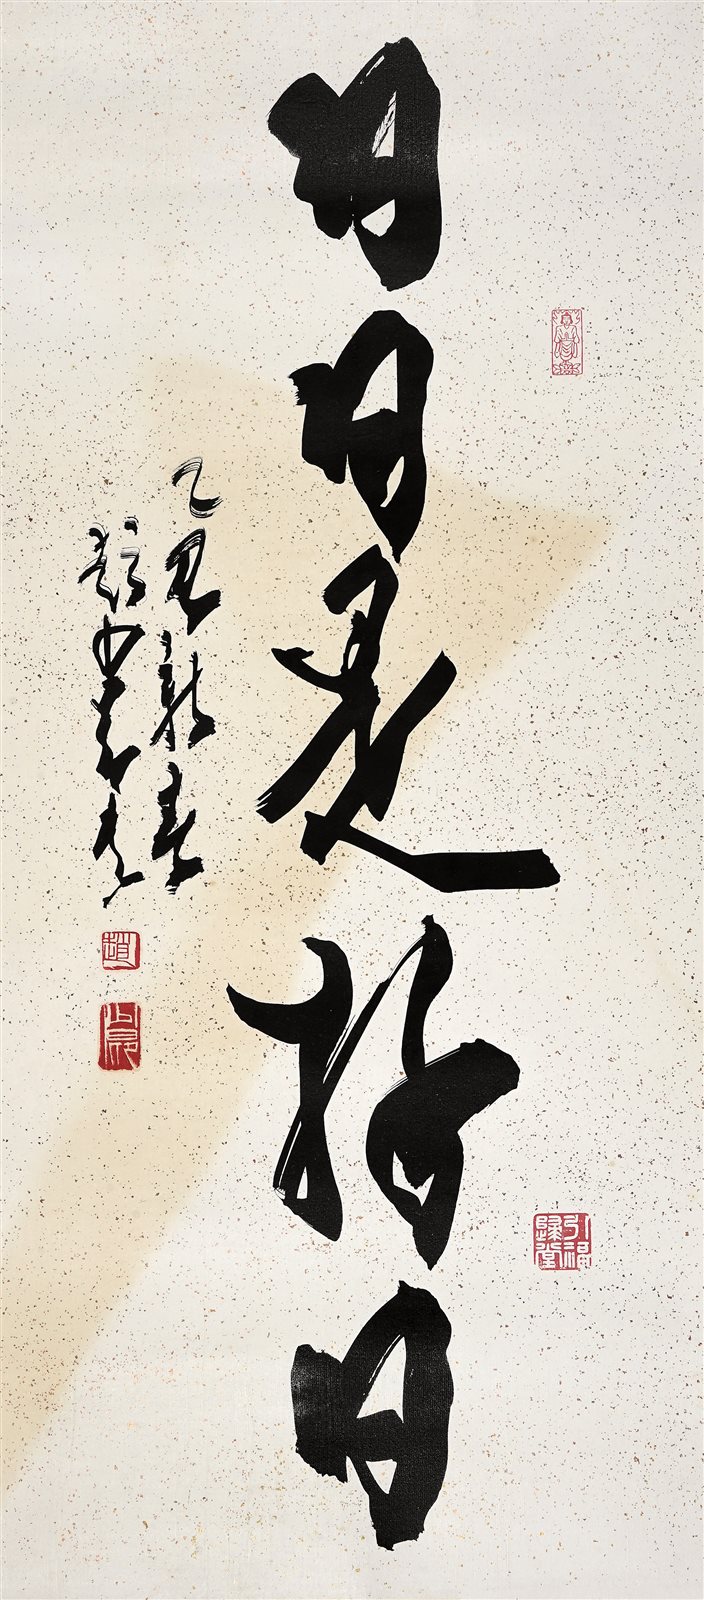 日日是好日
乙巳新春
趙
引福歸堂